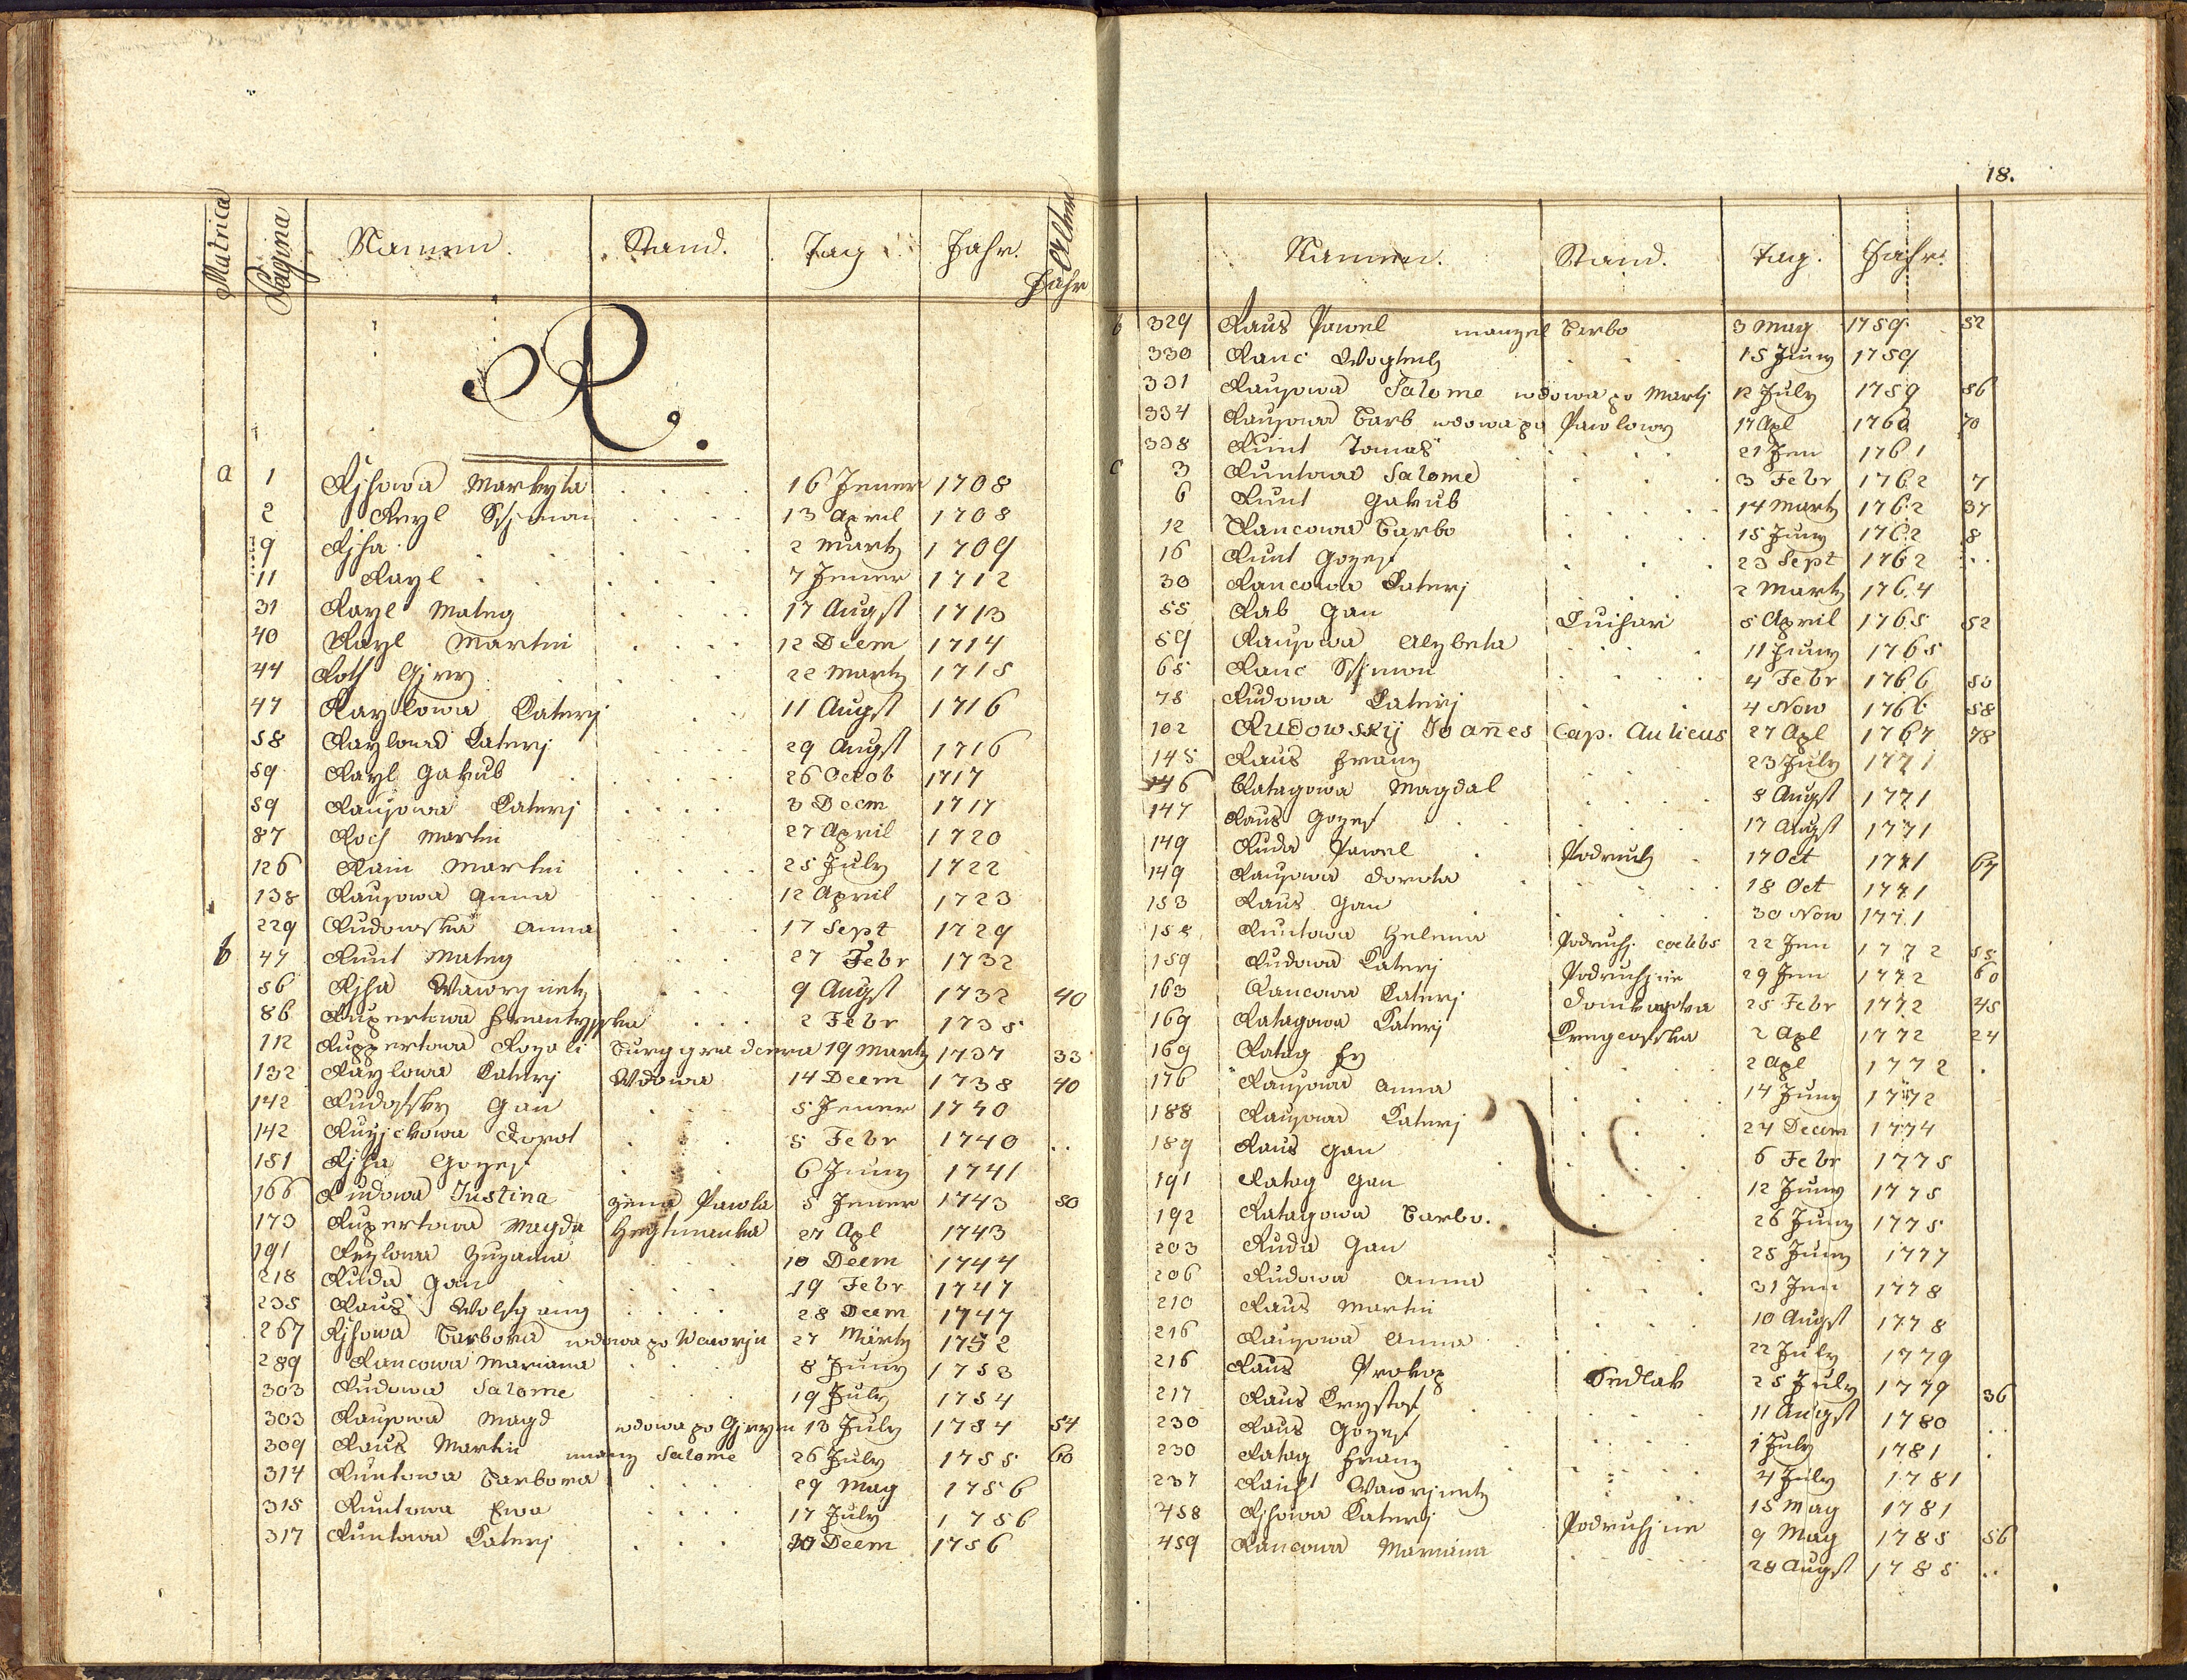 18.
Matrica Pagina Namen. Stand. Tag Jahr. Alter Jahr
R.
a 1 Rjhowa Markyta 16 Jener 1708
2 Reyl Ssjmon 13 April 1708
9 Rjha 2 Martz 1709
11 Rayl 7 Jener 1712
31 Rayl Mateg 17 Augst 1713
40 Rayl Martin 12 Decm 1714
44 Roth Gjrry 22 Martz 1715
47 Raylowa Katerj 11 Augst 1716
58 Raylowa Katerj 29 Augst 1716
59 Rayl Gakub 26 Octob 1717
59 Rausowa Katerj 3 Decm 1717
87 Roch Martin 27 April 1720
126 Rain Martin 25 July 1722
138 Rausowa Anna 12 April 1723
229 Rudowska Anna 17 Sept 1729
b 47 Runt Mateg 27 Febr 1732
56 Rjha Wawrjnetz 9 Augst 1732 40
86 Rupertowa Frantysska 2 Febr 1735
112 Ruppertowa Rozali Burggraderra 19 Martz 1737 33
132 Raylowa Katerj Wdowa 14 Decm 1738 40
142 Rudofsky Gan 5 Jener 1740
142 Rusjckowa Dorot 5 Febr 1740 ..
151 Rjha Gozef 6 Juny 1741
166 Rudowa Justina zena Pawla 5 Jener 1743 50
173 Rupertowa Magda Hegtmanka 27 Apl 1743
191 Reylowa Zuzanna 10 Decm 1744
218 Ruda Gan 19 Febr 1747
235 Raus Wolfgang 28 Decm 1747
267 Rjhowa Barbora wdowa po Wawrjn 27 Märtz 1752
289 Rancowa Mariana 8 Juny 1753
303 Rudowa Salome 19 July 1754
303 Rausowa Magd wdowa po Gjrym 13 July 1754 54
309 Raus Martin manz Salome 26 July 1755 60
314 Runtowa Barbora 29 May 1756
315 Runtowa Ewa 17 July 1756
317 Runtowa Katerj 30 Decm 1756
Namen. Stand. Tag. Jahr.
b 329 Raus Pawel manzel Barbo 3 May 1759 52
330 Ranc Wogtech 15 Juny 1759
331 Rausowa Salome wdowa po Martj 12 July 1759 56
334 Rausowa Barb wdowa po Pawlowy 17 Apl 1760 70
338 Runt Tomas 21 Jen 1761
c 3 Runtowa Salome 3 Febr 1762 7
6 Runt Gakub 14 Martz 1762 37
12 Rancowa Barbo 15 Juny 1762 8
16 Runt Gozef 23 Sept 1762 ..
30 Rancowa Katerj 2 Martz 1764
55 Rab Gan 5 April 1765 52
59 Rausowa Alzbeta 11 Juny 1765
65 Ranc Ssjmon 4 Febr 1766 50
78 Rudowa Katerj 4 Now 1766 58
102 Rudowskÿ Joan̄es Cap. Aulicus 27 Apl 1767 78
145 Raus Franz 23 July 1771
146 Ratagowa Magdal 8 Augst 1771
147 Raus Gozef 17 Augst 1771
149 Ruda Pawel Podruch 17 Oct 1771 67
149 Rausowa Dorota 18 Oct 1771
153 Raus Gan 30 Now 1771
158 Runtowa Helena Podruh. coelebs 22 Jen 1772 55
159 Rudowa Katerj Podruhjne 29 Jen 1772 60
163 Rancowa Katerj Domkarka 25 Febr 1772 45
169 Ratagowa Katerj 2 Apl 1772 24
169 Ratag 2 Apl 1772 .
176 Rausowa Anna 14 Juny 1772
188 Rausowa Katerj 24 Decem 1774
189 Raus Gan 6 Febr 1775
191 Ratag Gan 12 Juny 1775
192 Ratagowa Barbo. 26 Juny 1775
203 Ruda Gan 25 Juny 1777
206 Rudowa Anna 31 Jen 1778
210 Raus Martin 10 Augst 1778
216 Rausowa Anna 22 July 1779
216 Raus Prokop Sedlak 25 July 1779 36
217 Raus Krystof 11 Augst 1780 ..
230 Raus Gozef 1 July 1781 .
230 Ratag Franz 4 July 1781
237 Raicht Wawrjnetz 15 May 1781
458 Rjhowa Katerj Podruhjne 9 May 1785 56
459 Rancowa Mariana 28 Augst 1785 ..